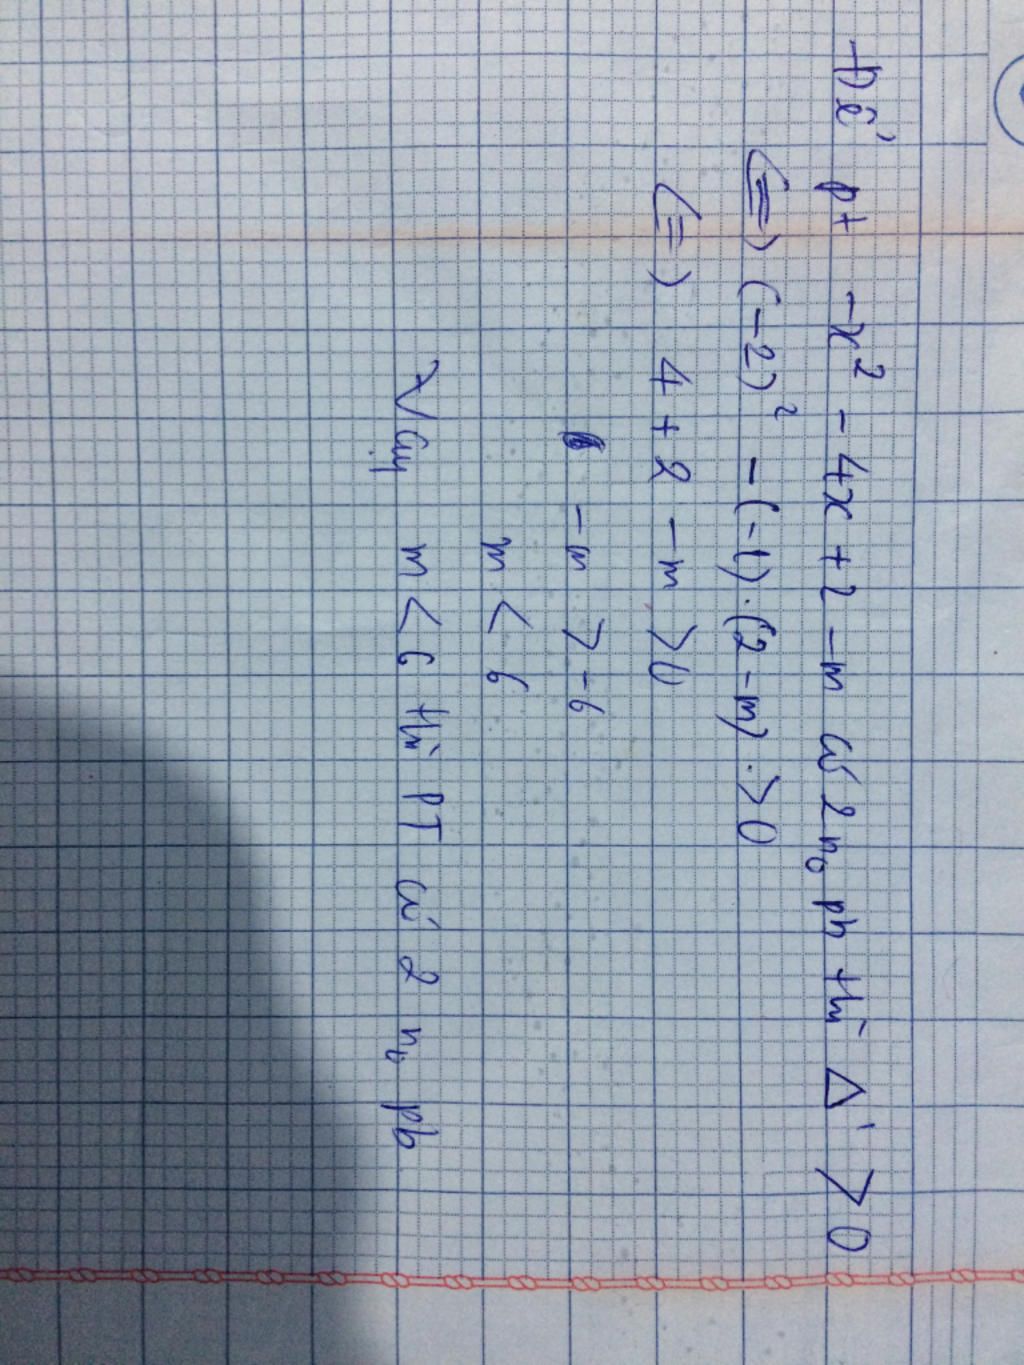 Để pt -x² - 4x + 2 - m có 2 n₀ pb thì Δ' > 0
<=> (-2)² - (-1).(2 - m) . > 0
<=> 4 + 2 - m > 0
- m > -6
m < 6
Vậy m < 6 thì PT có 2 n₀ pb